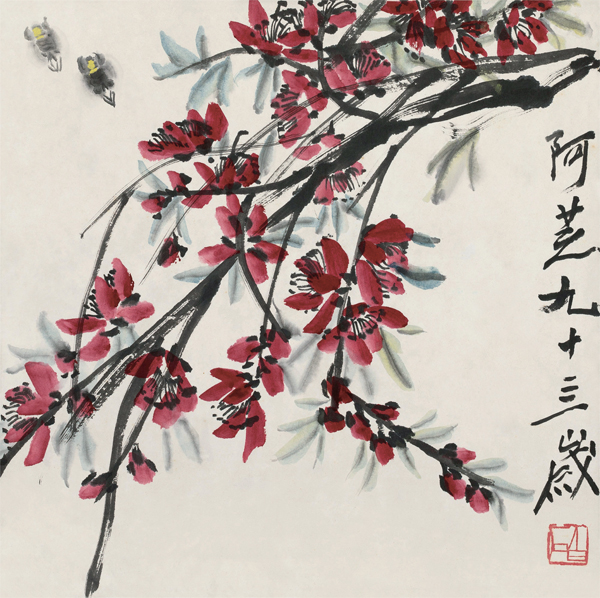 阿芝九十三歲